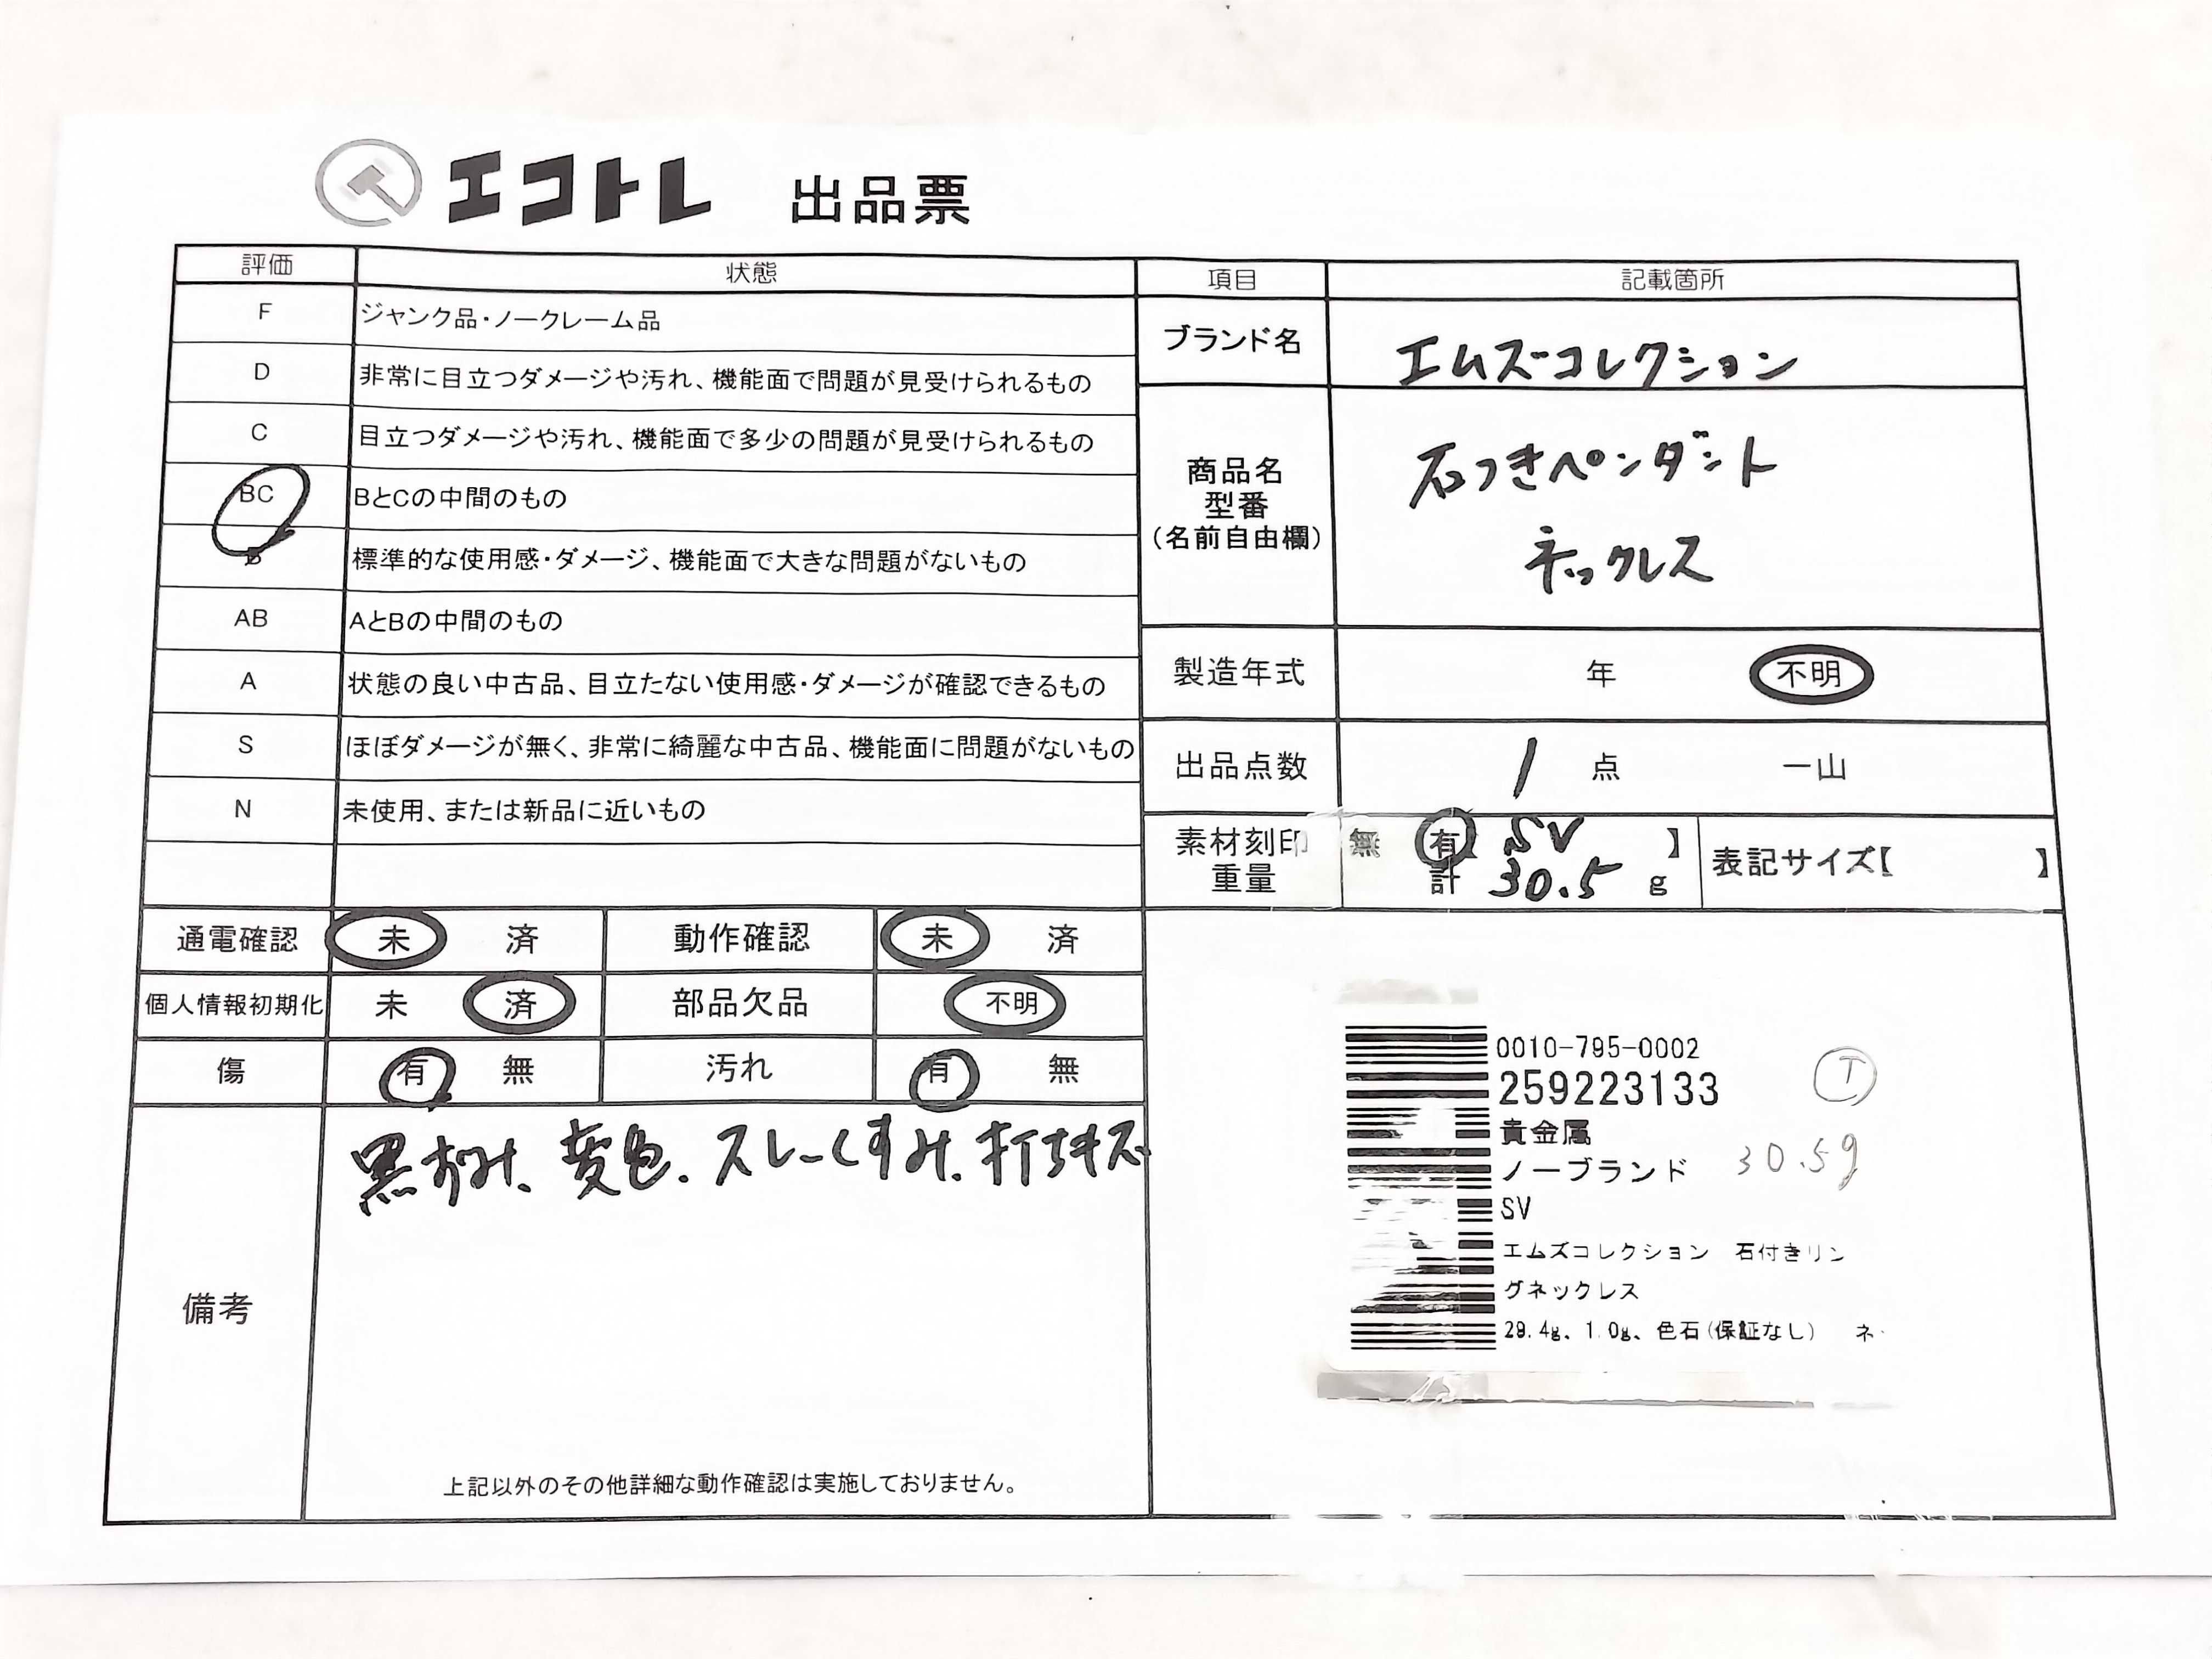 エコトレ 出品票
評価 状態
F ジャンク品・ノークレーム品
D 非常に目立つダメージや汚れ、機能面で問題が見受けられるもの
C 目立つダメージや汚れ、機能面で多少の問題が見受けられるもの
BC BとCの中間のもの
B 標準的な使用感・ダメージ、機能面で大きな問題がないもの
AB AとBの中間のもの
A 状態の良い中古品、目立たない使用感・ダメージが確認できるもの
S ほぼダメージが無く、非常に綺麗な中古品、機能面に問題がないもの
N 未使用、または新品に近いもの
項目 記載箇所
ブランド名 エムズコレクション
商品名
型番
(名前自由欄)
石つきペンダント
ネックレス
製造年式 年 不明
出品点数 1 点 一山
素材刻印 無 有 SV 】
重量 計 30.5 g
表記サイズ【 】
通電確認 未 済 動作確認 未 済
個人情報初期化 未 済 部品欠品 不明
傷 有 無 汚れ 有 無
備考
黒ずみ、変色、スレ、くすみ、打ちキズ
上記以外のその他詳細な動作確認は実施しておりません。
0010-795-0002
259223133 T
貴金属
ノーブランド 30.5g
SV
エムズコレクション 石付きリン
グネックレス
29.4g、1.0g、色石(保証なし) ネ